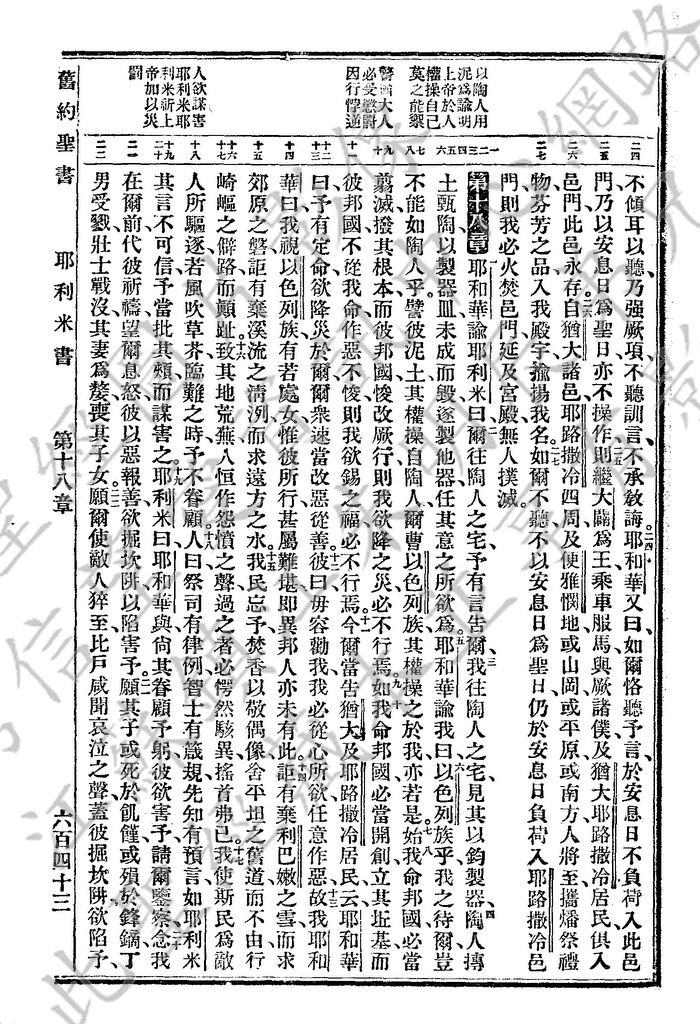 舊約聖書
耶利米書
第十八章
六百四十三
以陶人用
泥為諭明
上帝於人
權操自己
莫之能禦
警猶大人
必受懲罰
因行悖逆
人欲謀害
耶利米耶
利米祈上
帝加以災
罰
不傾耳以聽乃强厥項不聽訓言不承敎誨耶和華又曰如爾恪聽予言於安息日不負荷入此邑
門乃以安息日爲聖日亦不操作則繼大闢爲王乘車服馬與厥諸僕及猶大耶路撒冷居民俱入
邑門此邑永存自猶大諸邑耶路撒冷四周及便雅憫地或山岡或平原或南方人將至攜燔祭禮
物芬芳之品入我殿宇揄揚我名如爾不聽不以安息日爲聖日仍於安息日負荷入耶路撒冷邑
門則我必火焚邑門延及宮殿無人撲滅
第十八章 耶和華諭耶利米曰爾往陶人之宅予有言告爾我往陶人之宅見其以鈞製器陶人摶
土甄陶以製器皿未成而毀遂製他器任其意之所欲爲耶和華諭我曰以色列族乎我之待爾豈
不能如陶人乎譬彼泥土其權操自陶人爾曹以色列族其權操之於我亦若是始我命邦國必當
翦滅撥其根本而彼邦國悛改厥行則我欲降之災必不行焉如我命邦國必當開創立其坵基而
彼邦國不從我命作惡不悛則我欲錫之福必不行焉今爾當告猶大及耶路撒冷居民云耶和華
曰予有定命欲降災於爾爾衆速當改惡從善彼曰毋容勸我我必從心所欲任意作惡故我耶和
華曰我視以色列族有若處女惟彼所行甚屬難堪卽異邦人亦未有此詎有棄利巴嫩之雪而求
郊原之磐詎有棄溪流之淸洌而求遠方之水我民忘予焚香以敬偶像舍平坦之舊道而不由行
崎嶇之僻路而顚趾致其地荒無人恒作怨憤之聲過之者必愕然駭異搖首弗已我使斯民爲敵
人所驅逐若風吹草芥臨難之時予不眷顧人曰祭司有律例智士有箴規先知有預言如耶利米
其言不可信予當批其頰而謀害之耶利米曰耶和華與尙其眷顧予躬彼欲害予請爾鑒察念我
在爾前代彼祈禱望爾息怒彼以惡報善欲掘坎阱以陷害予願其子或死於飢饉或殞於鋒鏑丁
男受戮壯士戰沒其妻爲嫠喪其子女願爾使敵人猝至比戶咸聞哀泣之聲蓋彼掘坎阱欲陷予